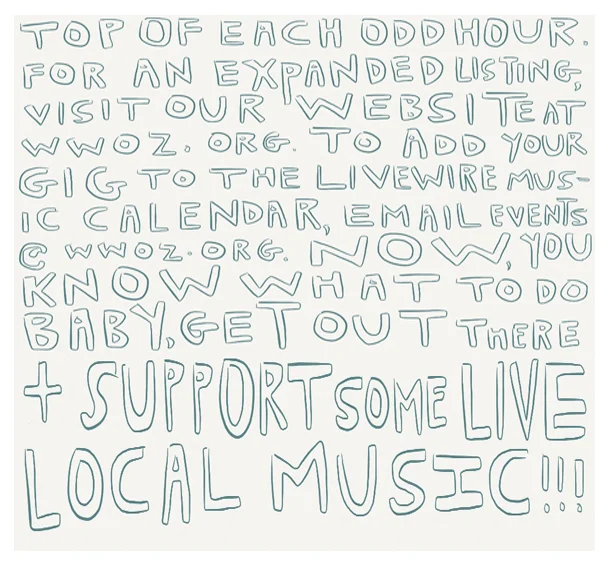 TOP OF EACH ODD HOUR.
FOR AN EXPANDED LISTING,
VISIT OUR WEBSITE AT
WWOZ. ORG. TO ADD YOUR
GIG TO THE LIVEWIRE MUS-
IC CALENDAR, EMAIL EVENTS
@ WWOZ.ORG. NOW, YOU
KNOW WHAT TO DO
BABY, GET OUT THERE
+ SUPPORT SOME LIVE
LOCAL MUSIC!!!